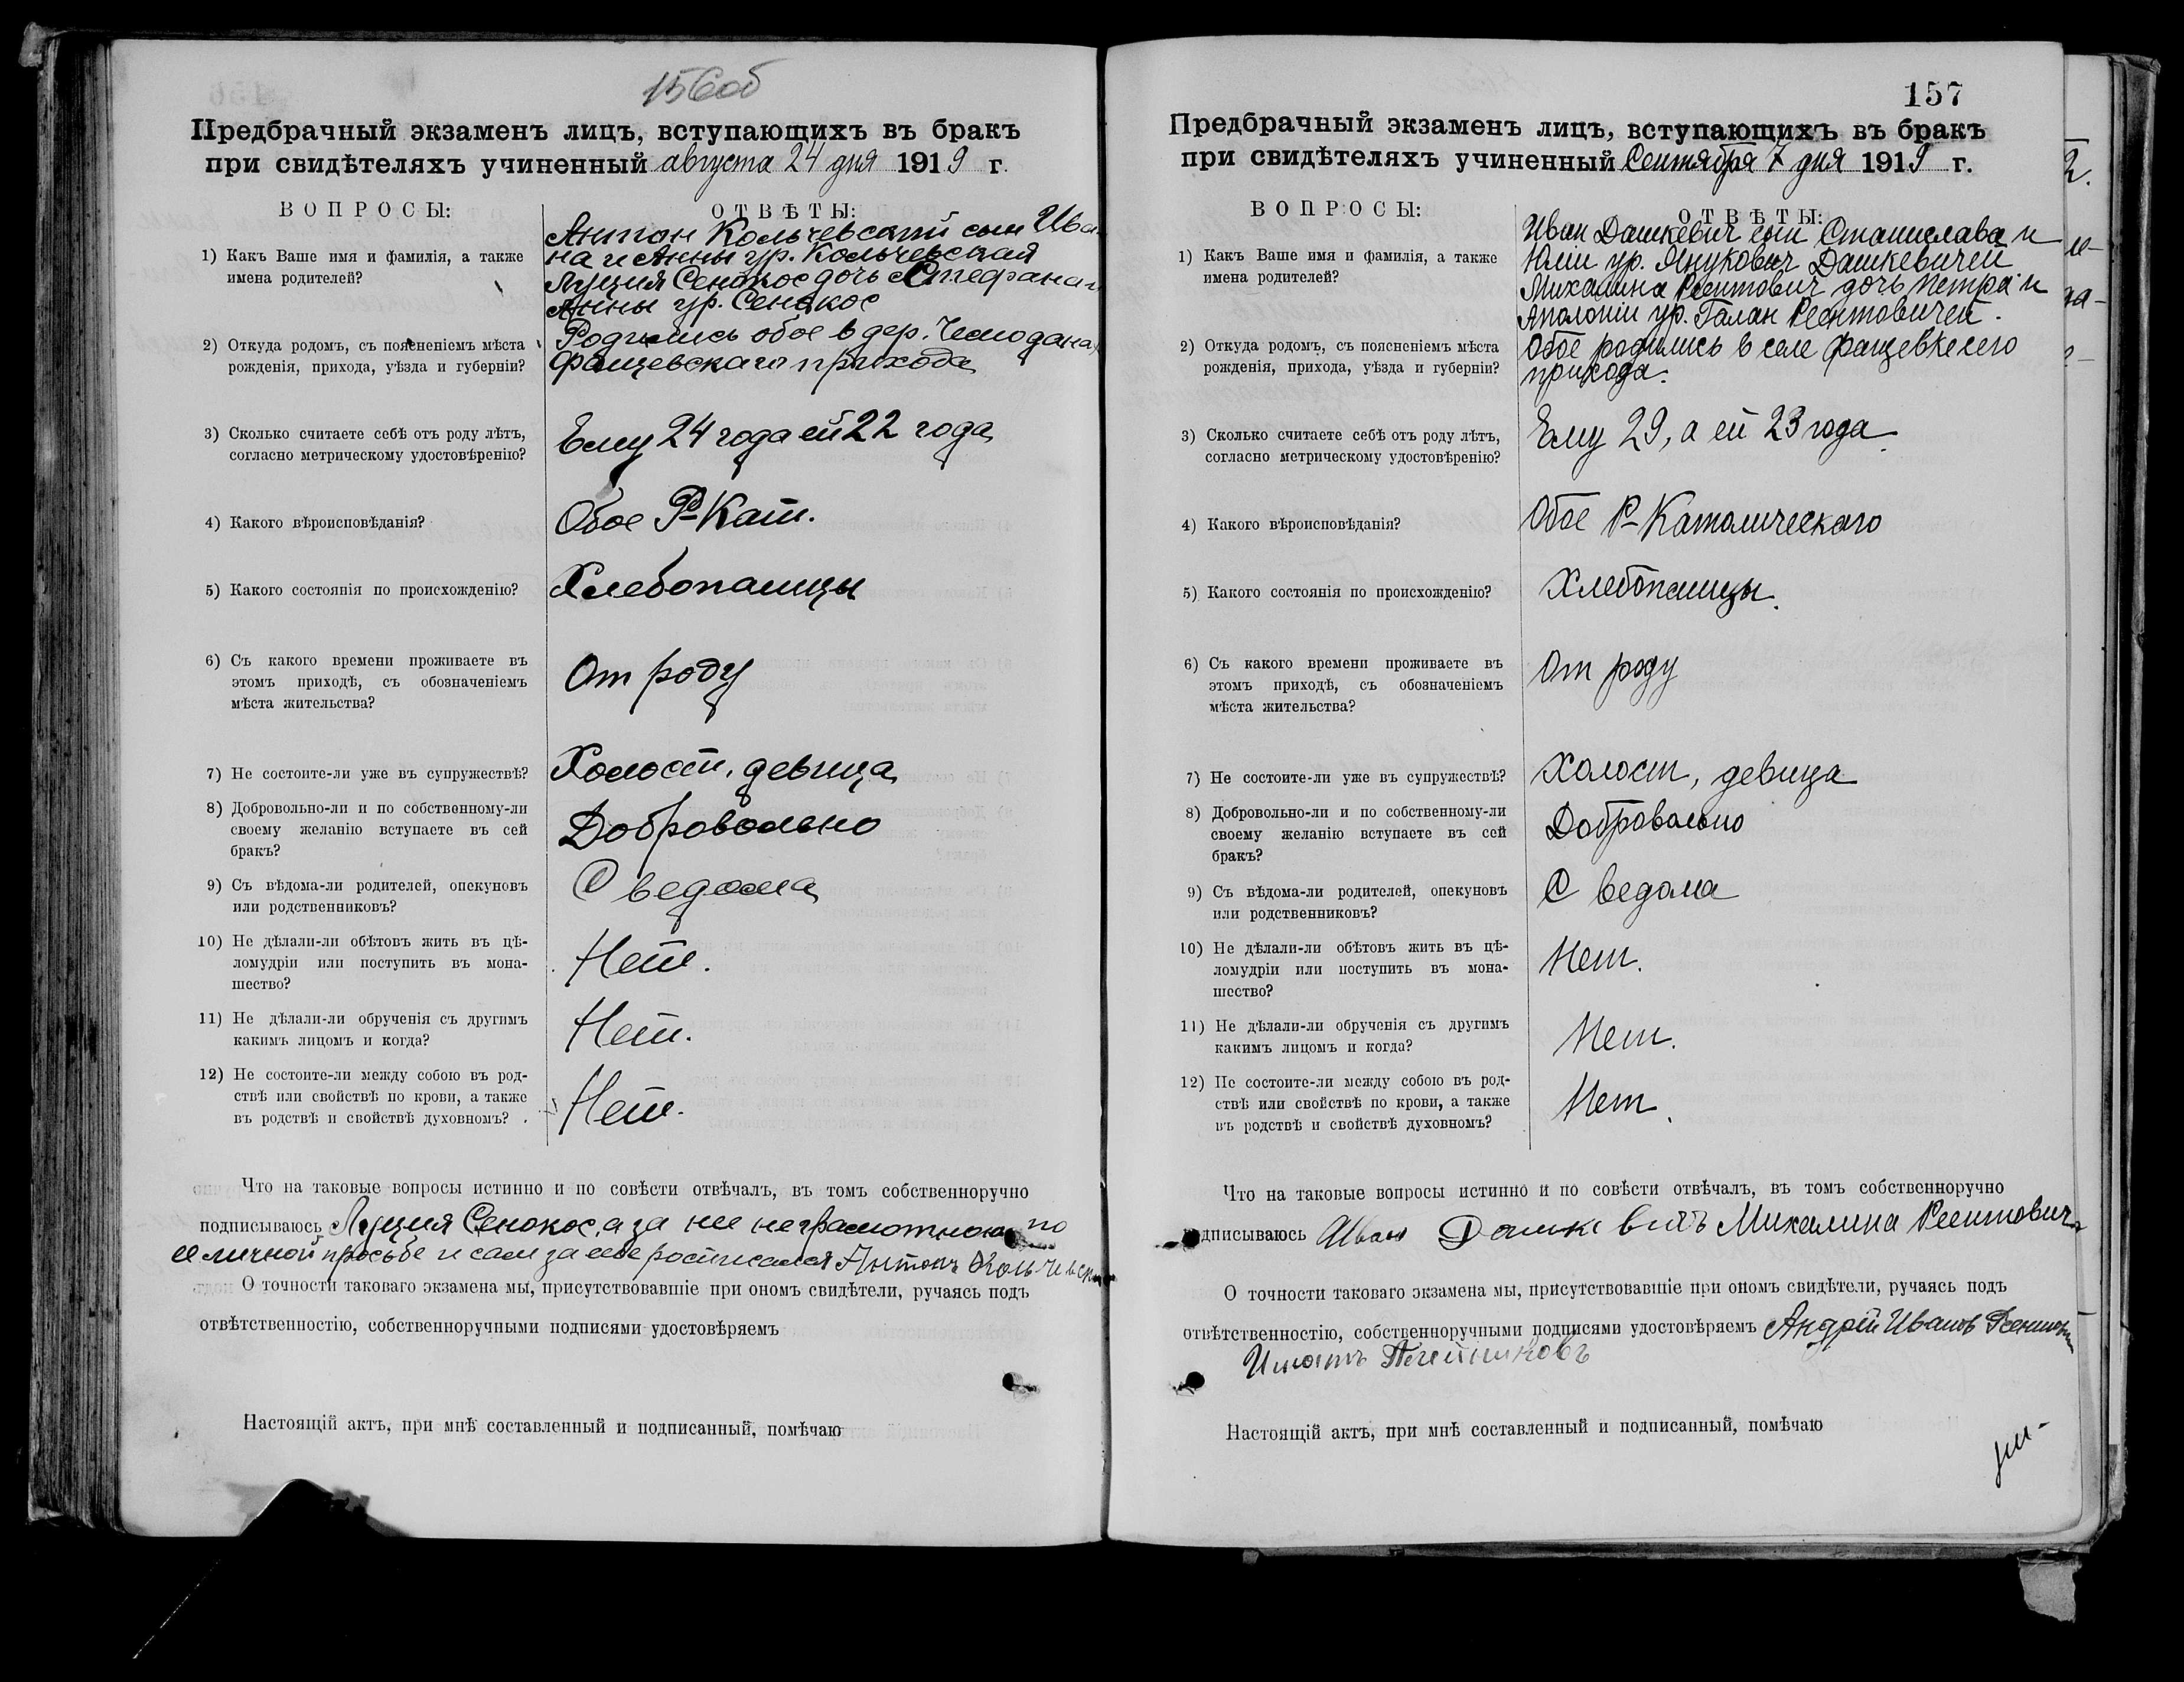 156об
Предбрачный экзаменъ лицъ, вступающихъ въ бракъ
при свидѣтеляхъ учиненный августа 24 дня 1919 г.
ВОПРОСЫ:
ОТВѢТЫ:
1) Какъ Ваше имя и фамилія, а также
имена родителей?
Антон Кольчевский сын Ива-
на и Анны ур. Кольчевская
Луция Сенокос дочь Стефана и
Анны ур. Сенокос
2) Откуда родомъ, съ поясненіемъ мѣста
рожденія, прихода, уѣзда и губерніи?
Родились обое в дер. Чемоданах
Фащевскаго прихода
3) Сколько считаете себѣ отъ роду лѣтъ,
согласно метрическому удостовѣренію?
Ему 24 года ей 22 года
4) Какого вѣроисповѣданія?
Обое Р-Кат.
5) Какого состоянія по происхожденію?
Хлебопашцы
6) Съ какого времени проживаете въ
этомъ приходѣ, съ обозначеніемъ
мѣста жительства?
От роду
7) Не состоите-ли уже въ супружествѣ?
Холост, девица
8) Добровольно-ли и по собственному-ли
своему желанію вступаете въ сей
бракъ?
Добровольно
9) Съ вѣдома-ли родителей, опекуновъ
или родственниковъ?
С ведома
10) Не дѣлали-ли обѣтовъ жить въ цѣ-
ломудріи или поступить въ мона-
шество?
Нет.
11) Не дѣлали-ли обрученія съ другимъ
какимъ лицомъ и когда?
Нет.
12) Не состоите-ли между собою въ род-
ствѣ или свойствѣ по крови, а также
въ родствѣ и свойствѣ духовномъ?
Нет.
Что на таковые вопросы истинно и по совѣсти отвѣчалъ, въ томъ собственноручно
подписываюсь Луция Сенокос, а за нее неграмотною по
ее личной просьбе и сам за себе росписался Антонъ Кольчевски
О точности таковаго экзамена мы, присутствовавшіе при ономъ свидѣтели, ручаясь подъ
отвѣтственностію, собственноручными подписями удостовѣряемъ
Настоящій актъ, при мнѣ составленный и подписанный, помѣчаю
157
Предбрачный экзаменъ лицъ, вступающихъ въ бракъ
при свидѣтеляхъ учиненный Сентября 7 дня 1919 г.
ВОПРОСЫ:
ОТВѢТЫ:
1) Какъ Ваше имя и фамилія, а также
имена родителей?
Иван Дашкевич сын Станислава и
Юлии ур. Янукович Дашкевичей
Михалина Реентович дочь Петра и
Аполонии ур. Галан Реентовичей.
2) Откуда родомъ, съ поясненіемъ мѣста
рожденія, прихода, уѣзда и губерніи?
Обое родились в селе Фащевке сего
прихода.
3) Сколько считаете себѣ отъ роду лѣтъ,
согласно метрическому удостовѣренію?
Ему 29, а ей 23 года.
4) Какого вѣроисповѣданія?
Обое Р-Католическаго
5) Какого состоянія по происхожденію?
Хлебопашцы.
6) Съ какого времени проживаете въ
этомъ приходѣ, съ обозначеніемъ
мѣста жительства?
От роду
7) Не состоите-ли уже въ супружествѣ?
Холост, девица
8) Добровольно-ли и по собственному-ли
своему желанію вступаете въ сей
бракъ?
Добровольно
9) Съ вѣдома-ли родителей, опекуновъ
или родственниковъ?
С ведома
10) Не дѣлали-ли обѣтовъ жить въ цѣ-
ломудріи или поступить въ мона-
шество?
Нет.
11) Не дѣлали-ли обрученія съ другимъ
какимъ лицомъ и когда?
Нет.
12) Не состоите-ли между собою въ род-
ствѣ или свойствѣ по крови, а также
въ родствѣ и свойствѣ духовномъ?
Нет.
Что на таковые вопросы истинно и по совѣсти отвѣчалъ, въ томъ собственноручно
дписываюсь Иван Дашкевичъ Михалина Реентович
О точности таковаго экзамена мы, присутствовавшіе при ономъ свидѣтели, ручаясь подъ
отвѣтственностію, собственноручными подписями удостовѣряемъ Андрей Иванов
Игнатъ
Настоящій актъ, при мнѣ составленный и подписанный, помѣчаю